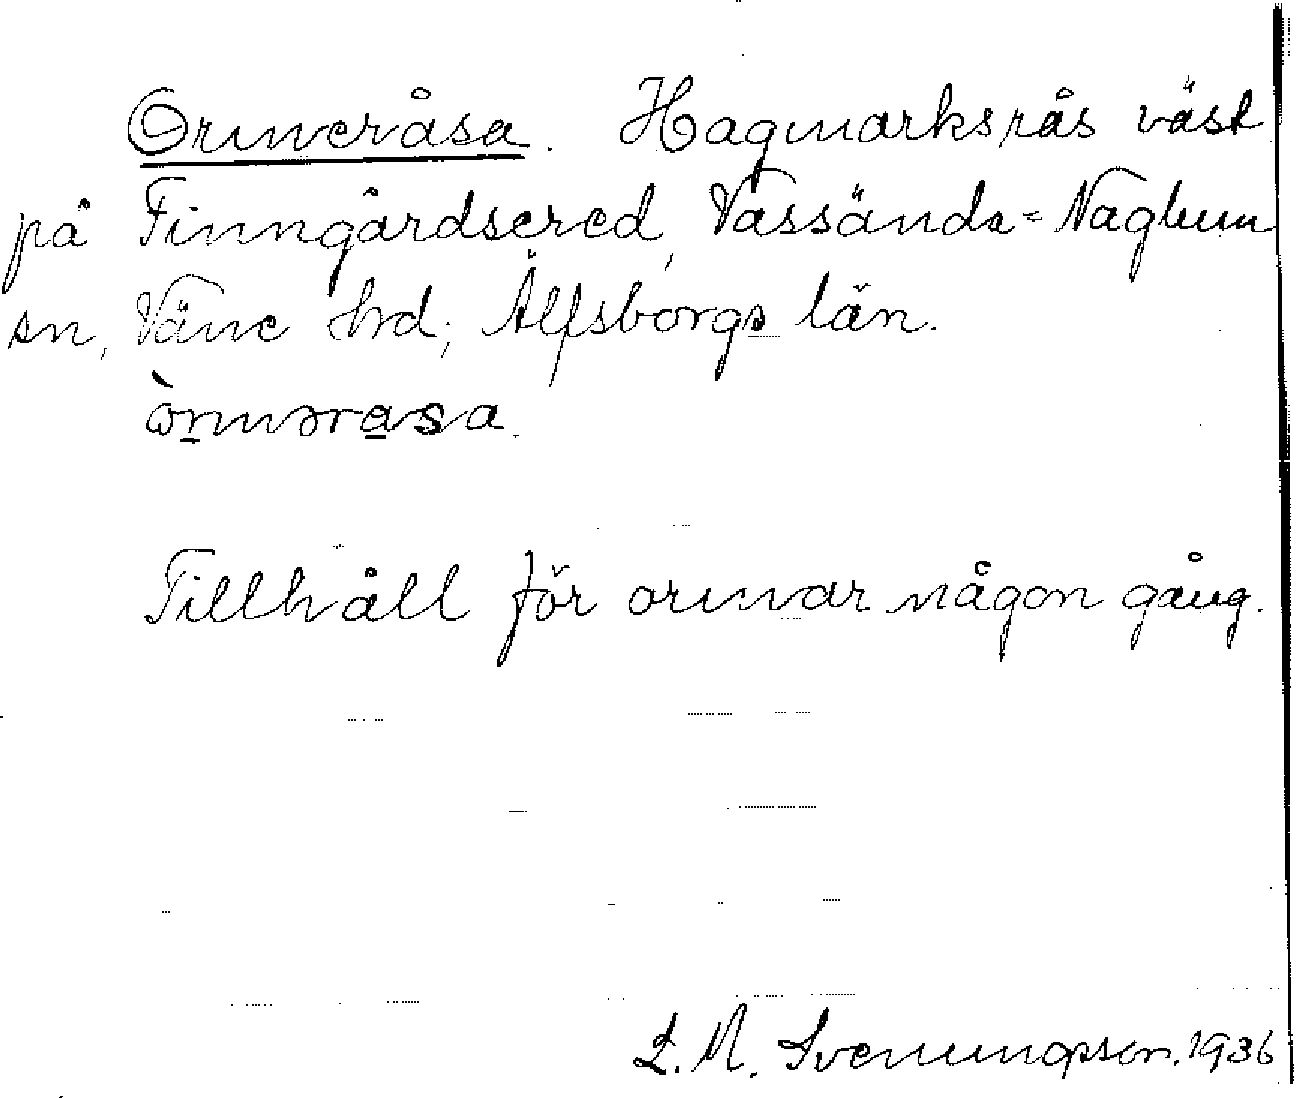 Ormeråsa. Hagmarksrås väst
på Finngårdsered, Vassända-Naglum
sn, Väne hrd, Älfsborgs län.
Tillhåll för ormar någon gång.
L. M. Svenungsson. 1936